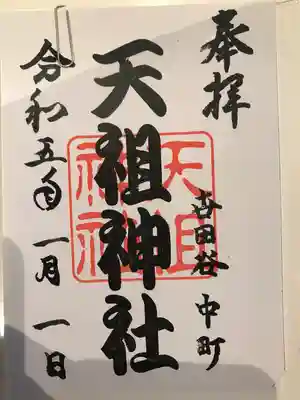 奉拝
世田谷 中町
天祖神社
天祖
神社
令和五年 一月 一日